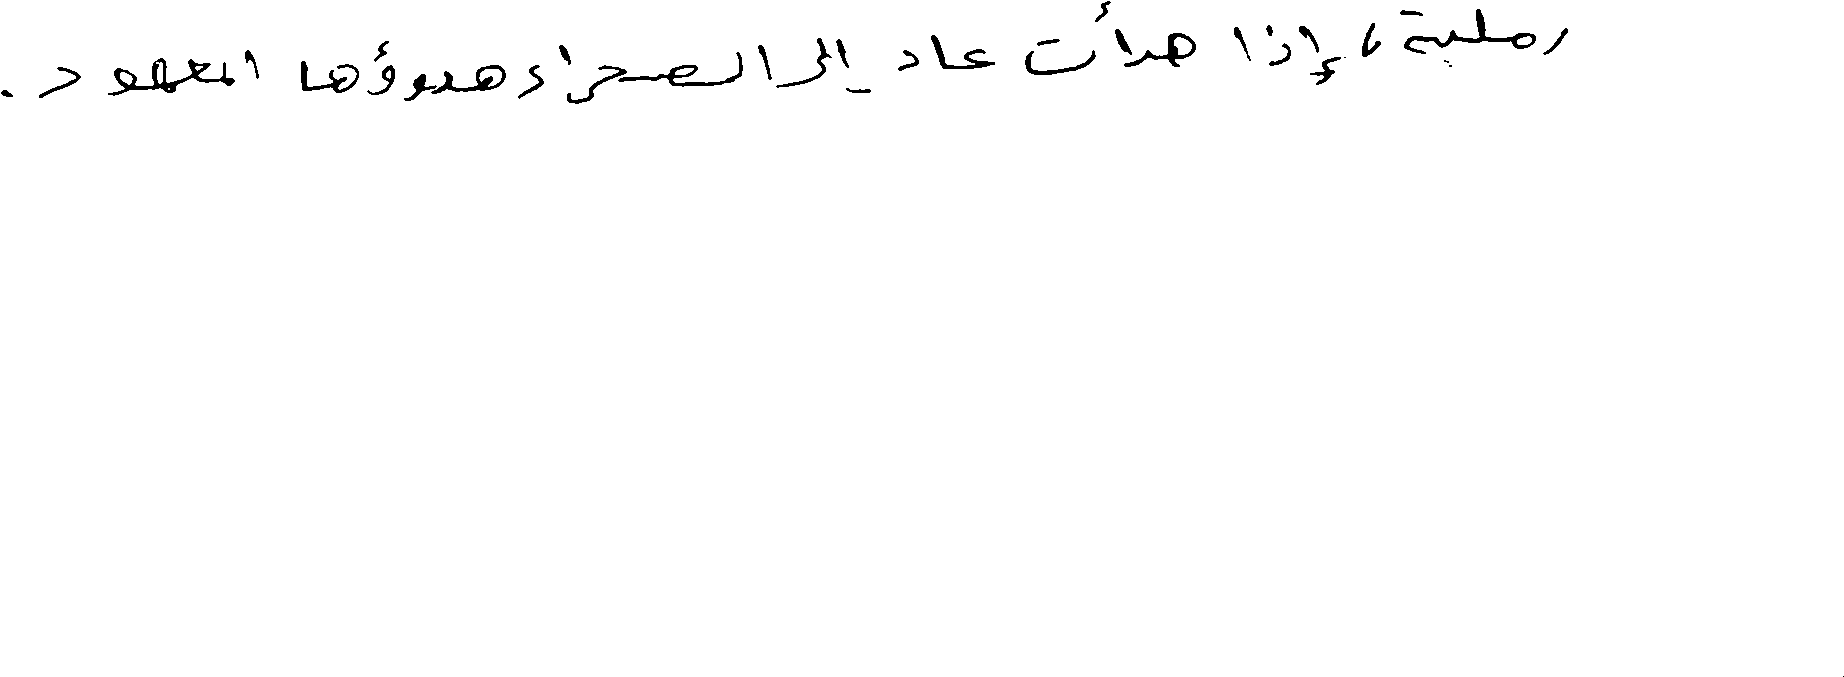 رملية، إذا هدأت عاد إلى الصحراء هدوؤها المعهود.